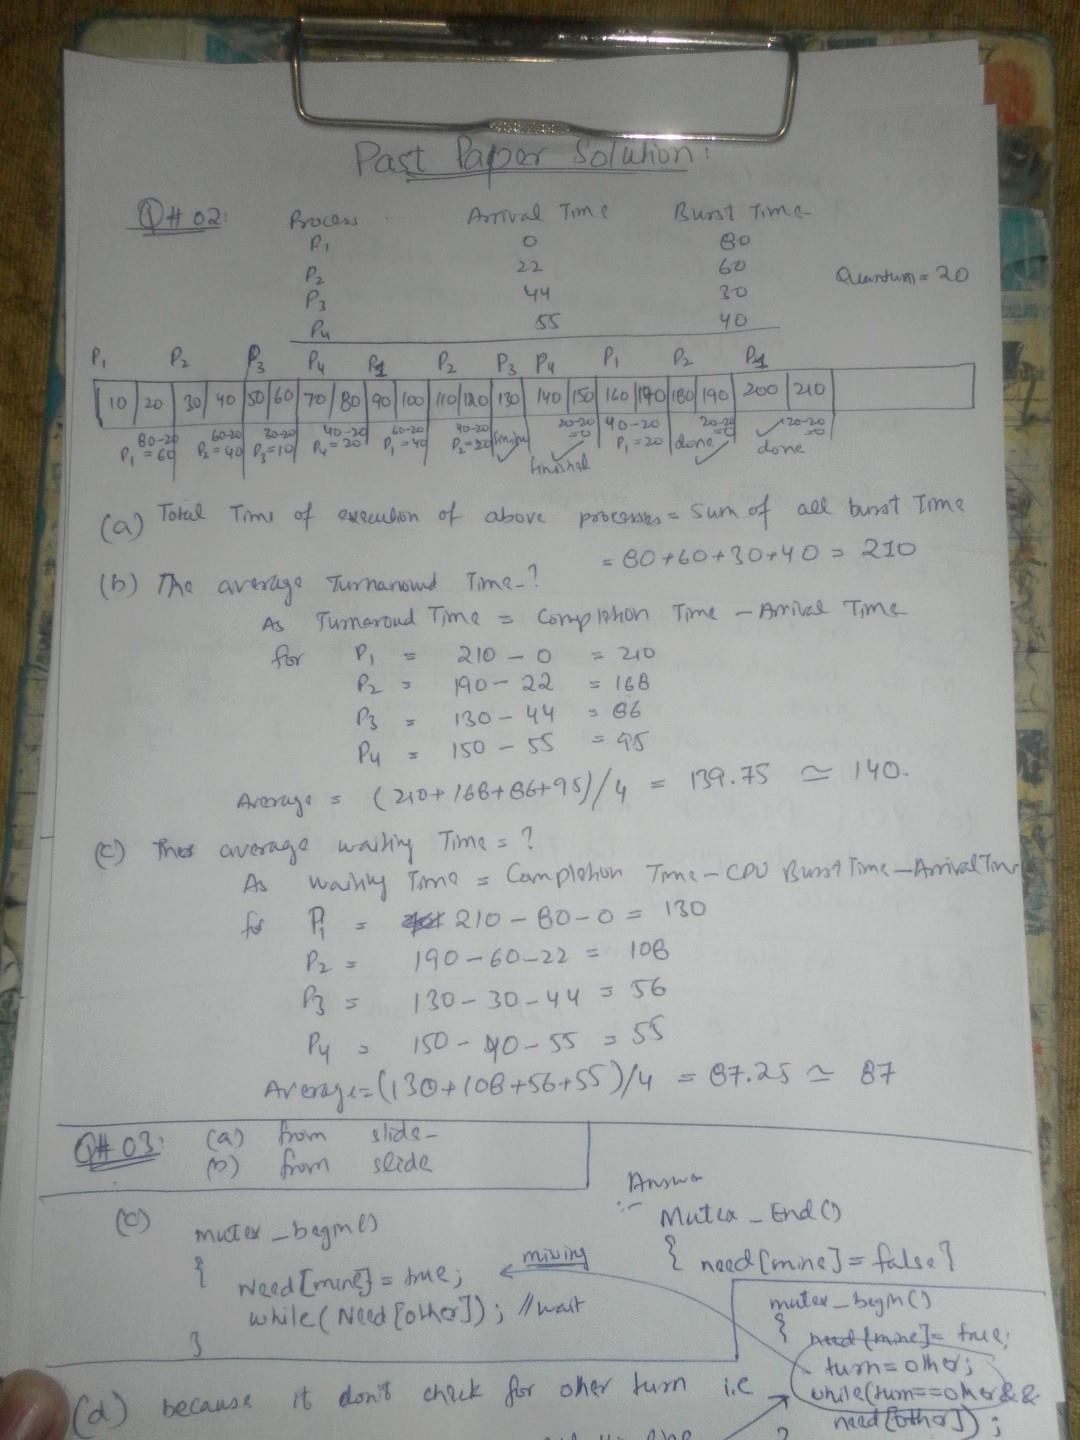 Past Paper Solution:
Q# 02: Process Arrival Time Burst Time
P1 0 80
P2 22 60
Quantum = 20
P3 44 30
P4 55 40
P1 P2 P3 P4 P1 P2 P3 P4 P1 P2 P1
10 20 30 40 50 60 70 80 90 100 110 120 130 140 150 160 170 180 190 200 210
80-20 60-20 30-20 40-20 60-20 40-20 20-20=0 40-20 20-20=0 20-20=0
P1=60 P2=40 P3=10 P4=20 P1=40 P2=20 finished P1=20 done done
(a) Total Time of execution of above processes = Sum of all burst Time
= 80+60+30+40 = 210
(b) The average Turnaround Time-?
As Turnaroud Time = Completion Time - Arrival Time
for P1 = 210 - 0 = 210
P2 = 190 - 22 = 168
P3 = 130 - 44 = 86
P4 = 150 - 55 = 95
Average = (210+168+86+95)/4 = 139.75 ≃ 140.
(c) average waiting Time = ?
As waiting Time = Completion Time - CPU Burst Time - Arrival Time
for P1 = 210 - 80 - 0 = 130
P2 = 190 - 60 - 22 = 108
P3 = 130 - 30 - 44 = 56
P4 = 150 - 40 - 55 = 55
Average = (130+108+56+55)/4 = 87.25 ≃ 87
Q# 03: (a) from slide-
(b) from slide
Answer
:-
(c) mutex_begin()
{
Need[mine] = true;
while(Need[other]); //wait
}
missing
Mutex_End()
{ need[mine] = false}
mutex_begin()
{ need[mine] = true;
turn = other;
while(turn == other &&
need[other]);
(d) because it don't check for other turn i.e